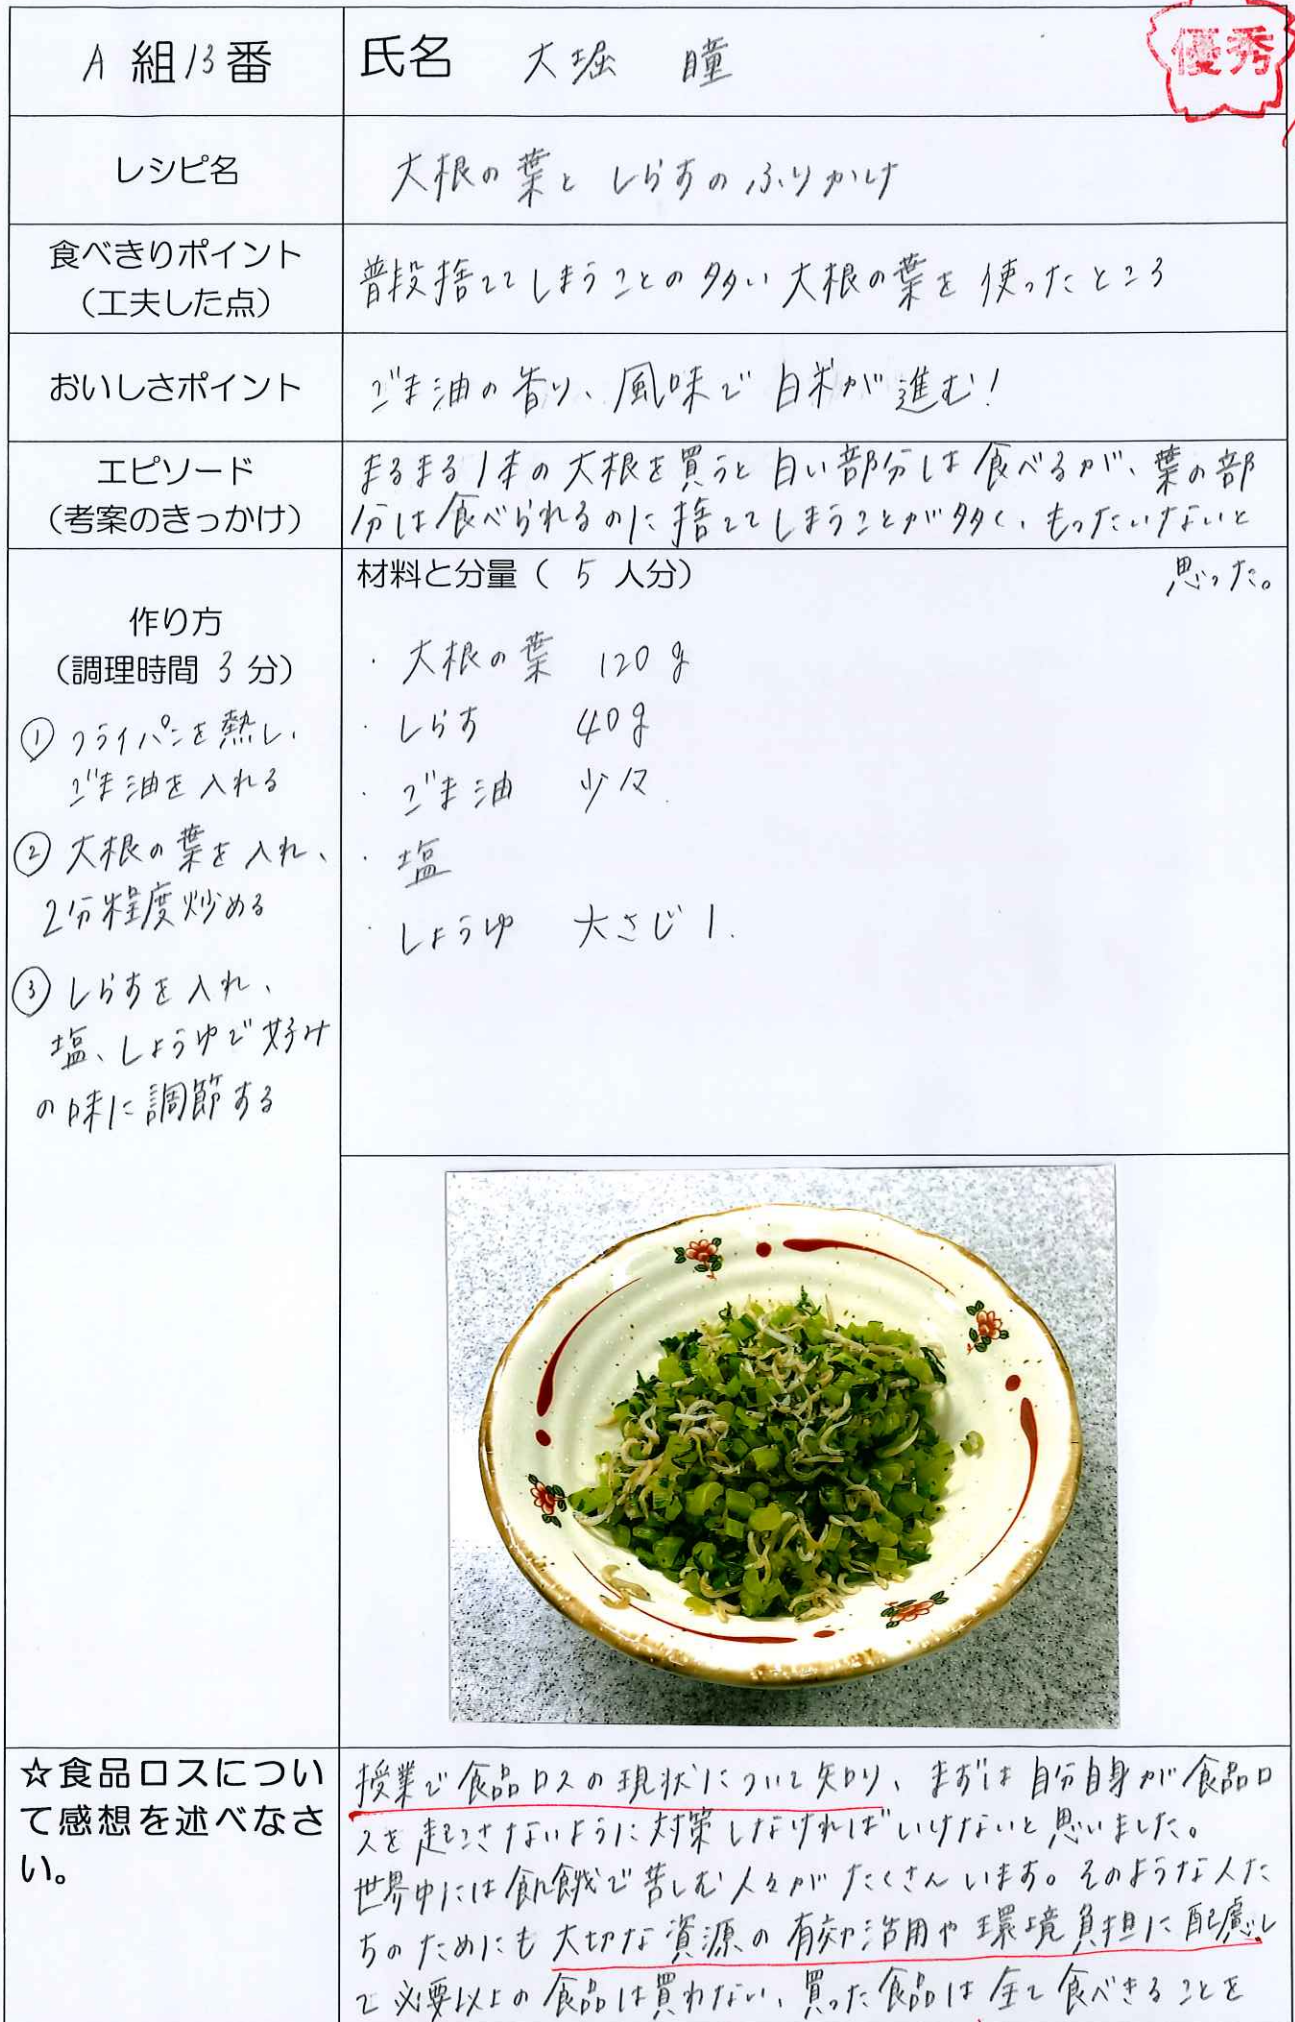 A 組13番
氏名 大堀 瞳
優秀
レシピ名
大根の葉と しらすのふりかけ
食べきりポイント
（工夫した点）
普段捨ててしまうことの多い大根の葉を使ったところ
おいしさポイント
ごま油の香り、風味で白米が進む!
エピソード
（考案のきっかけ）
まるまる1本の大根を買うと白い部分は食べるが、葉の部
分は食べられるのに捨ててしまうことが多く、もったいないと
思った。
作り方
（調理時間 3 分）
① フライパンを熱し、
ごま油を入れる
② 大根の葉を入れ、
2分程度炒める
③ しらすを入れ、
塩、しょうゆで好み
の味に調節する
材料と分量（ 5 人分）
・大根の葉 120g
・しらす 40g
・ごま油 少々
・塩
・しょうゆ 大さじ1.
☆食品ロスについ
て感想を述べなさ
い。
授業で食品ロスの現状について知り、まずは自分自身が食品ロ
スを起こさないように対策しなければいけないと思いました。
世界中には飢餓で苦しむ人々がたくさんいます。そのような人た
ちのためにも大切な資源の有効活用や環境負担に配慮し
て必要以上の食品は買わない、買った食品は全て食べきることを